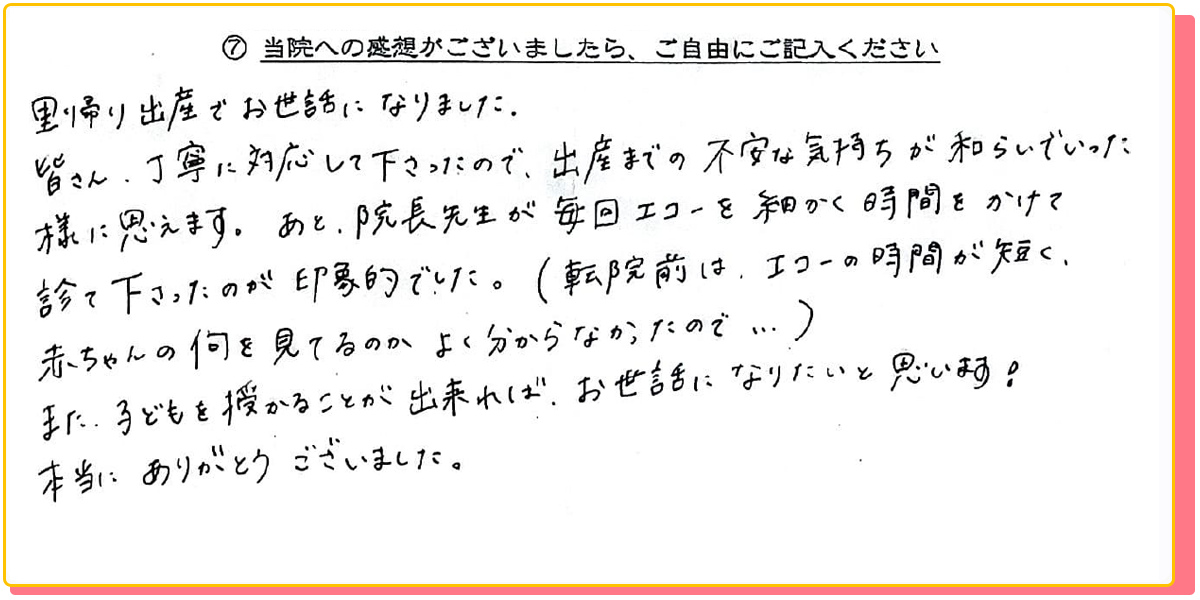 ⑦ 当院への感想がございましたら、ご自由にご記入ください
里帰り出産でお世話になりました.
皆さん、丁寧に対応して下さったので、出産までの不安な気持ちが和らいでいった
様に思えます。あと、院長先生が毎回エコーを細かく時間をかけて
診て下さったのが印象的でした。(転院前は、エコーの時間が短く、
赤ちゃんの何を見てるのかよく分からなかったので…)
また、子どもを授かることが出来れば、お世話になりたいと思います!
本当にありがとうございました。